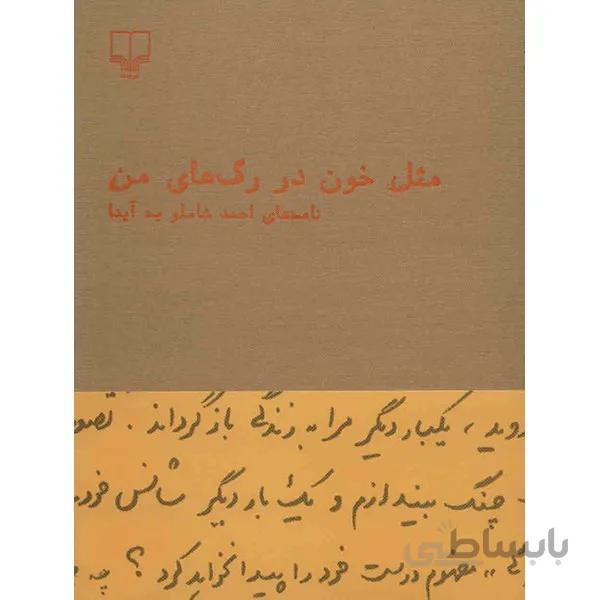 مثل خون در رگ‌های من
نامه‌های احمد شاملو به آیدا
روید، یکبار دیگر مرا به زندگی بازگرداند. تصور
چنگ بیندازم و یک بار دیگر شانس خود
مفهوم درست خود را پیدا نخواهد کرد؟
بابساطی